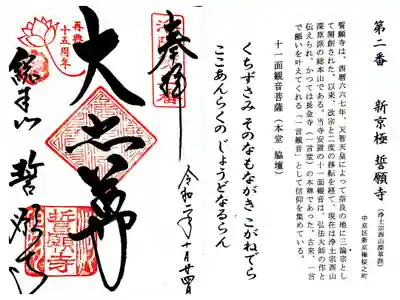 第二番 新京極 誓願寺
(浄土宗西山深草派)
中京区新京極桜之町
誓願寺は、西暦六六七年、天智天皇によって奈良の地に三論宗とし
て開創された。以来、改宗と二度の移転を経て、現在は浄土宗西山
深草派の総本山である。当寺安置の十一面観音は、弘法大師の作と
伝えられ、かつては長金寺(一言堂)の本尊であった。古来、一言
で願いを叶えてくれる「一言観音」として信仰を集めている。
十一面観音菩薩(本堂 脇壇)
くちずさみ そのなもながき こがねでら
ここあんらくの じょうどなるらん
奉拝
令和二年十月廿四日
大悲尊
再興
十五周年
総本山 誓願寺
誓願寺